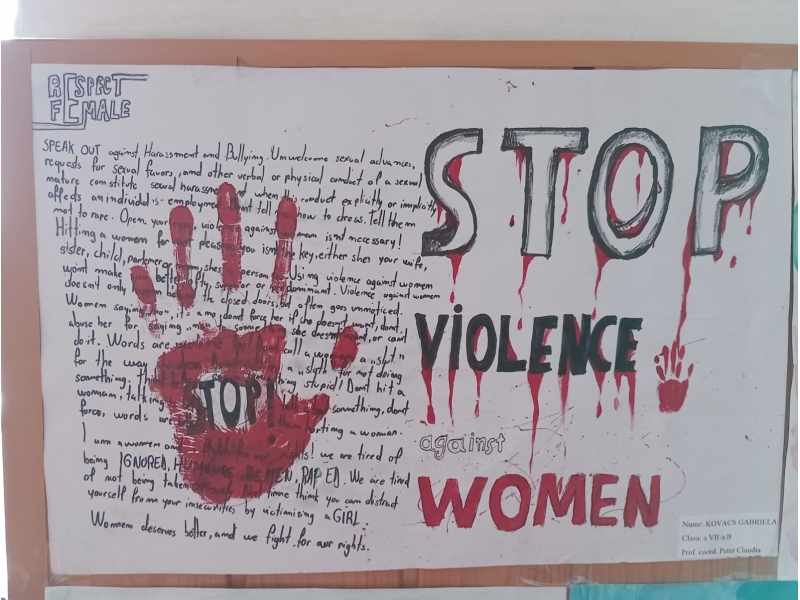 RESPECT
FEMALE
SPEAK OUT against Harassment and Bullying. Unwelcome sexual advances,
requests for sexual favors, and other verbal or physical conduct of a sexual
nature constitute sexual harassment when this conduct explicitly or implicitly
affects an individ is employmen Dont tell me how to dress. Tell them
not to rape. Open your eyes, violence against women isnt necessary!
Hitting a women for your pleasure you isn't the key, either shes your wife,
sister, child, partener shes person. Using violence against women
wont make better, superior or predominant. Violence against women
doesn't only the closed doors, but often goes unnoticed.
Women saying no, it's a no, dont force her if she doesn't want, dont
abuse her for saying she doesn't want, or cant
do it. Words are call a woman a "slut"
for the way a "slut" for not doing
something, think something stupid! Dont hit a
woman, talking something, dont
force, words are hurting a woman.
I am a women and fight for our rights! we are tired of
being IGNORED, HUMOURE, BEATEN, RAPED. We are tired
of not being taken time think you can distract
yourself from your insecurities by victimizing a GIRL.
Women deserves better, and we fight for our rights.
STOP!
STOP
VIOLENCE
against
WOMEN
Nume: KOVACS GABRIELA
Clasa: a VII-a B
Prof. coord. Peter Claudia